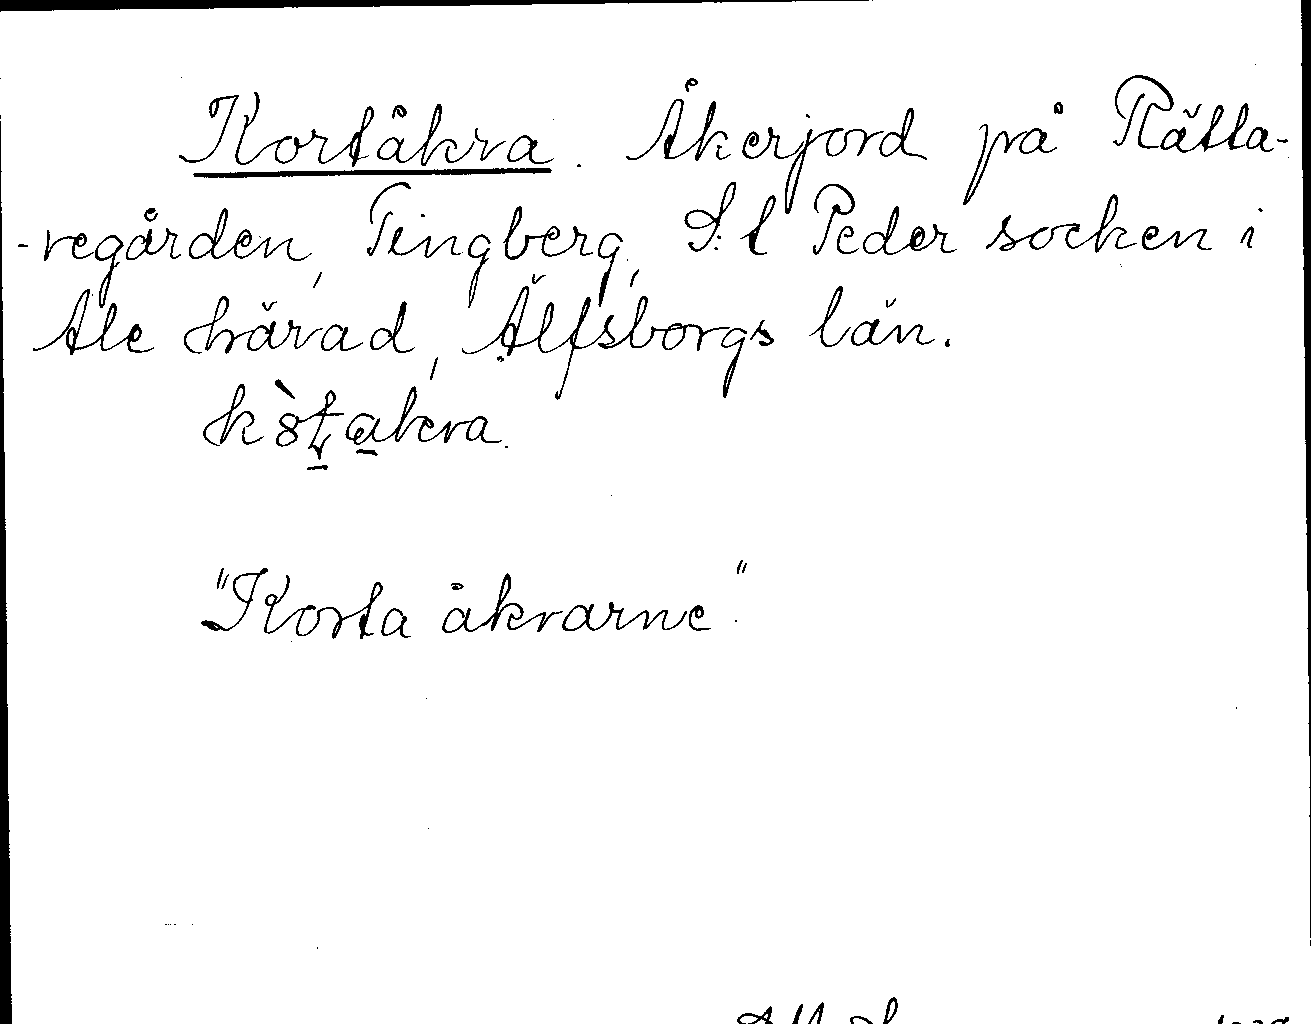 Kortåkra. Åkerjord på Rätta-
-regården, Tingberg, S:t Peder socken i
Ale härad, Älfsborgs län.
"Korta åkrarne".